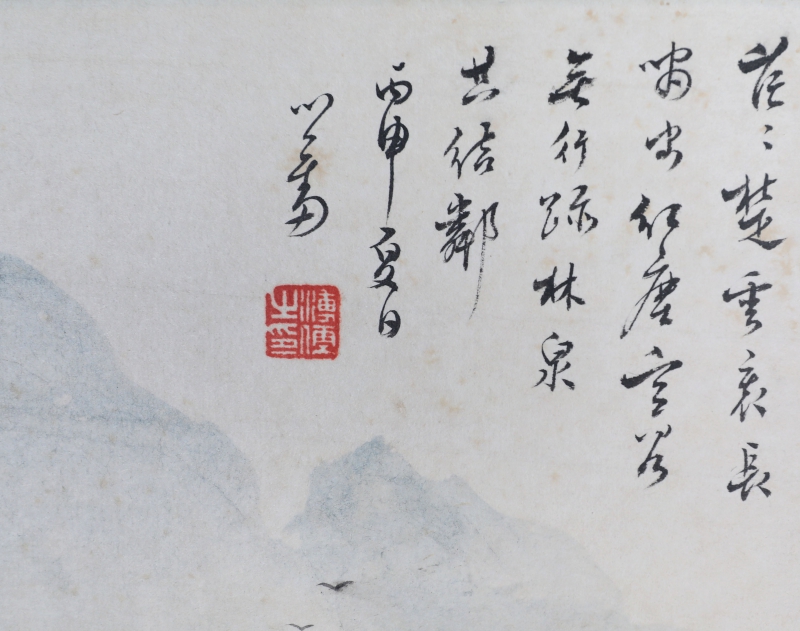 茫〻楚雲裏長
嘯出紅塵空谷
無行跡林泉
共結鄰
丙申夏日
心畬
溥儒
之印